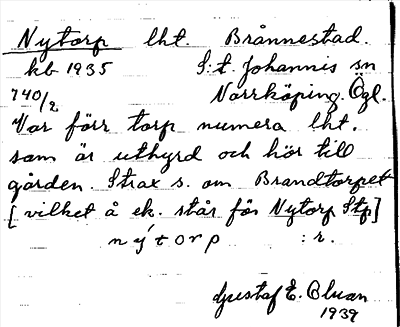 Nytorp lht. Brånnestad.
kb 1935 S:t. Johannis sn
740/2 Norrköping. Ögl.
Var förr torp numera lht.
som är uthyrd och hör till
gården. Strax s. om Brandtorpet
[vilket å ek. står för Nytorp Stp]
nýtorp :r.
Gustaf E. Bluan
1939